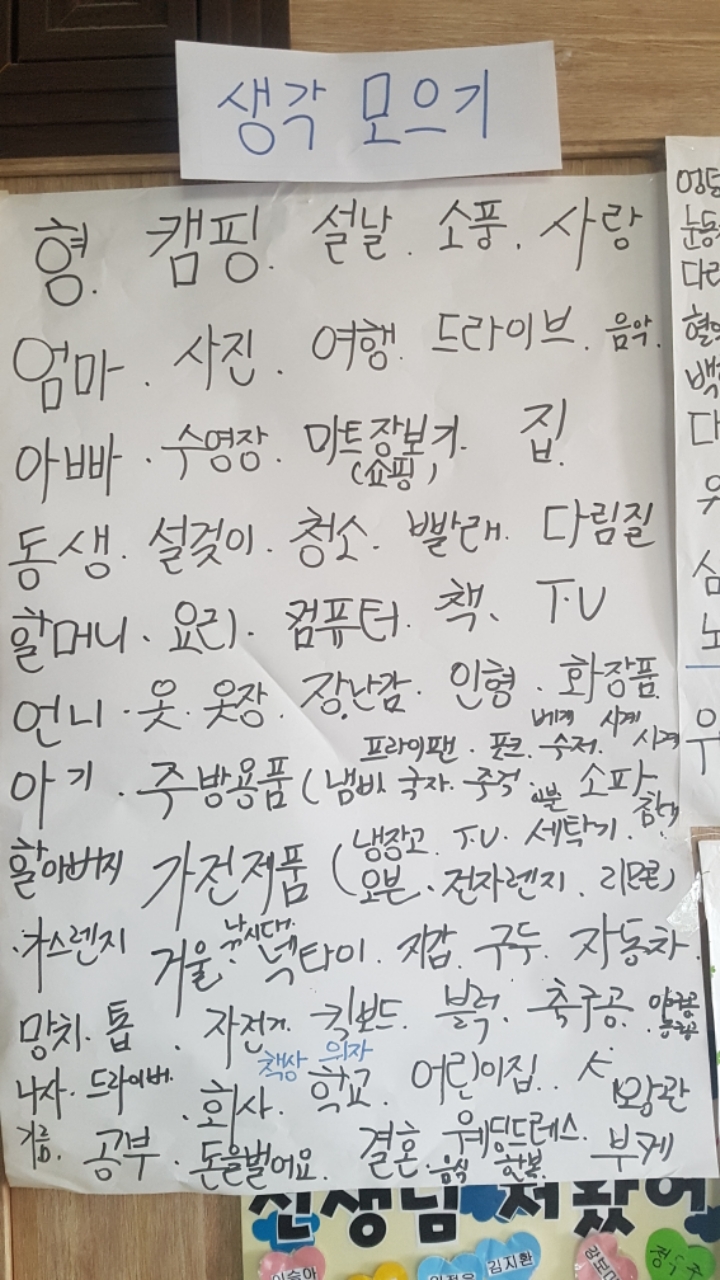 생각 모으기
형. 캠핑. 설날. 소풍. 사랑
엄마. 사진. 여행. 드라이브. 음악.
아빠. 수영장. 마트장보기. 집.
(쇼핑)
동생. 설겆이. 청소. 빨래. 다림질
할머니. 요리. 컴퓨터. 책. T.V
언니. 옷. 옷장. 장난감. 인형. 화장품
베게 시계
프라이팬. 포크. 수저.
아기. 주방용품 (냄비. 국자. 주걱. 소파
이불 침대
할아버지 가전제품 (냉장고. T.V. 세탁기.
오븐. 전자렌지. 리모콘)
낚시대.
가스렌지 거울 넥타이. 지갑. 구두. 자동차.
망치. 톱. 자전거. 킥보드. 블럭. 축구공. 야구공
농구공
책상 의자
나사. 드라이버. 회사. 학교. 어린이집.
기름. 공부. 돈을벌어요. 결혼. 웨딩드레스. 부케
음식 한복
선생님 저 왔어
이승아
김지환